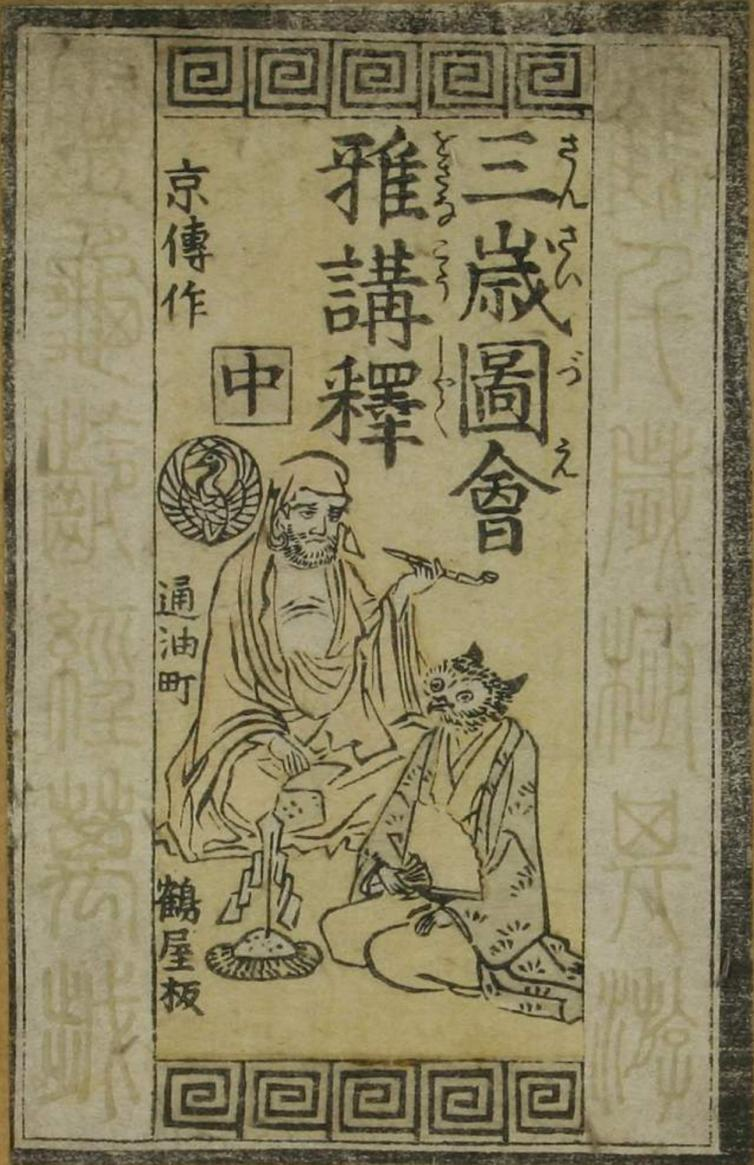 三歳圖會
さんさいづえ
稚講釋
をさなこうしやく
京傳作
中
通油町
鶴屋板